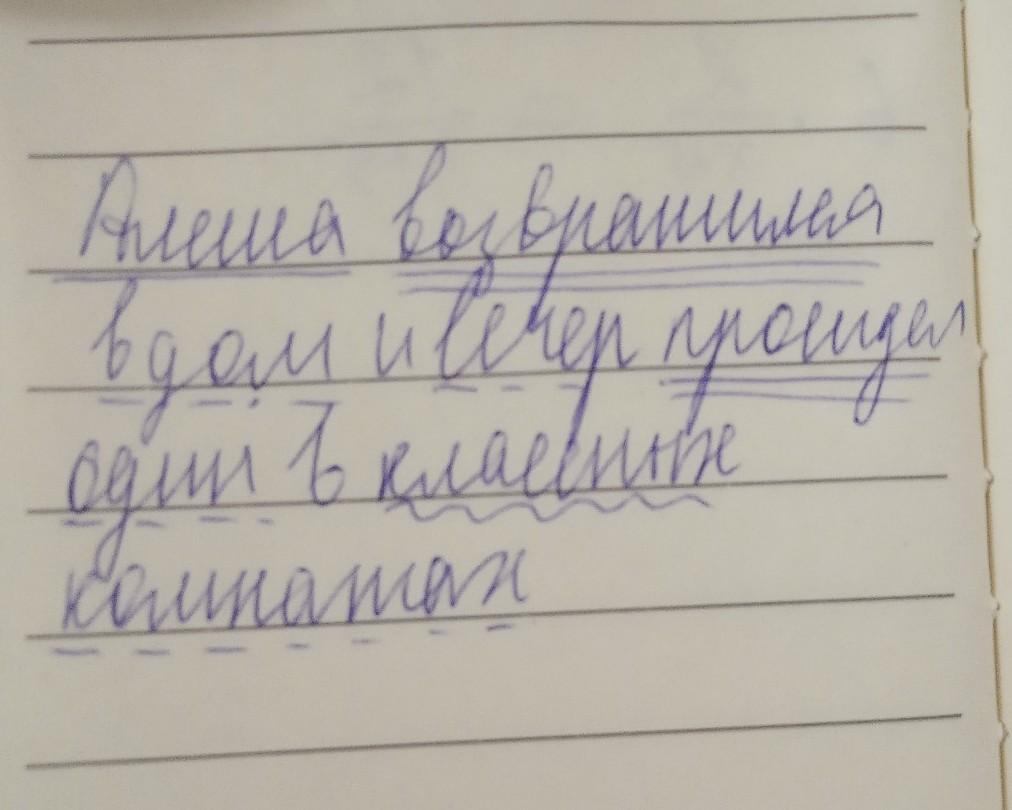 Алеша возвратился
в дом и вечер просидел
один в классных
комнатах